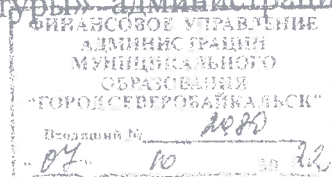 туры» администрации
ФИНАНСОВОЕ УПРАВЛЕНИЕ
АДМИНИСТРАЦИИ
МУНИЦИПАЛЬНОГО
ОБРАЗОВАНИЯ
"ГОРОД СЕВЕРОБАЙКАЛЬСК"
Входящий № 2080
" 07 " 10 20 22